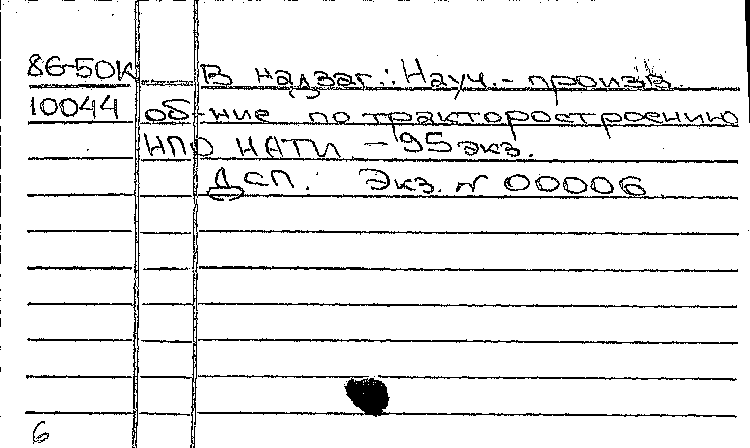 86-50К В надзаг.: Науч.-произв.
10044 об-ние по тракторостроению
НПО НАТИ - 95 экз.
ДСП. Экз. N 00006
6